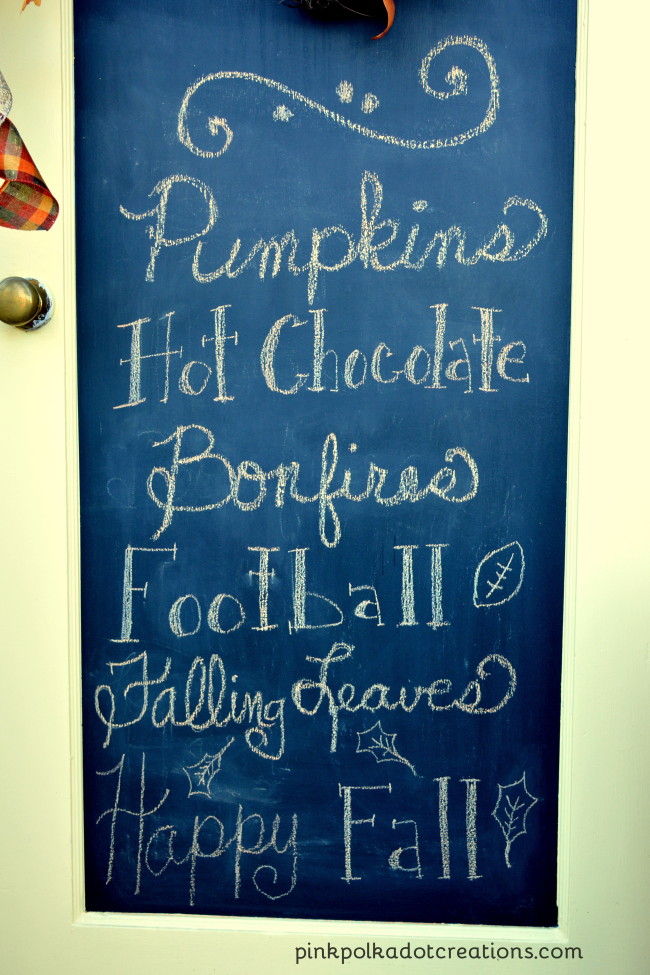 Pumpkins
Hot Chocolate
Bonfires
Football
Falling Leaves
Happy Fall
pinkpolkadotcreations.com